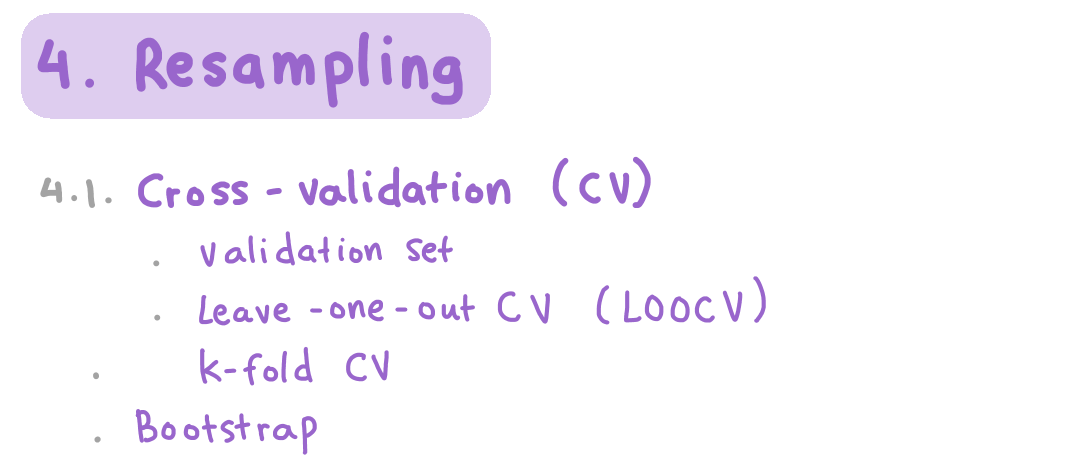 4. Resampling
4.1. Cross-validation (CV)
. validation set
. Leave-one-out CV (LOOCV)
. k-fold CV
. Bootstrap